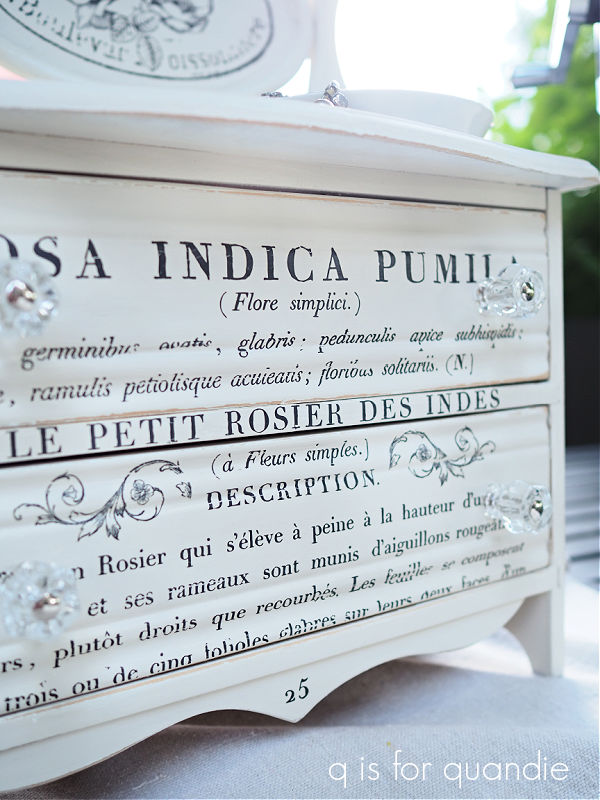 OSA INDICA PUMILA
(Flore simplici.)
germinibus ovatis, glabris; pedunculis apice subhispidis;
, ramulis petiolisque aculeatis; floribus solitariis. (N.)
LE PETIT ROSIER DES INDES
(à Fleurs simples.)
DESCRIPTION.
n Rosier qui s'élève à peine à la hauteur d'u
et ses rameaux sont munis d'aiguillons rougeât
rs, plutôt droits que recourbés. Les feuilles se composent
trois ou de cinq folioles glabres sur leurs deux faces, d'un
25
q is for quandie